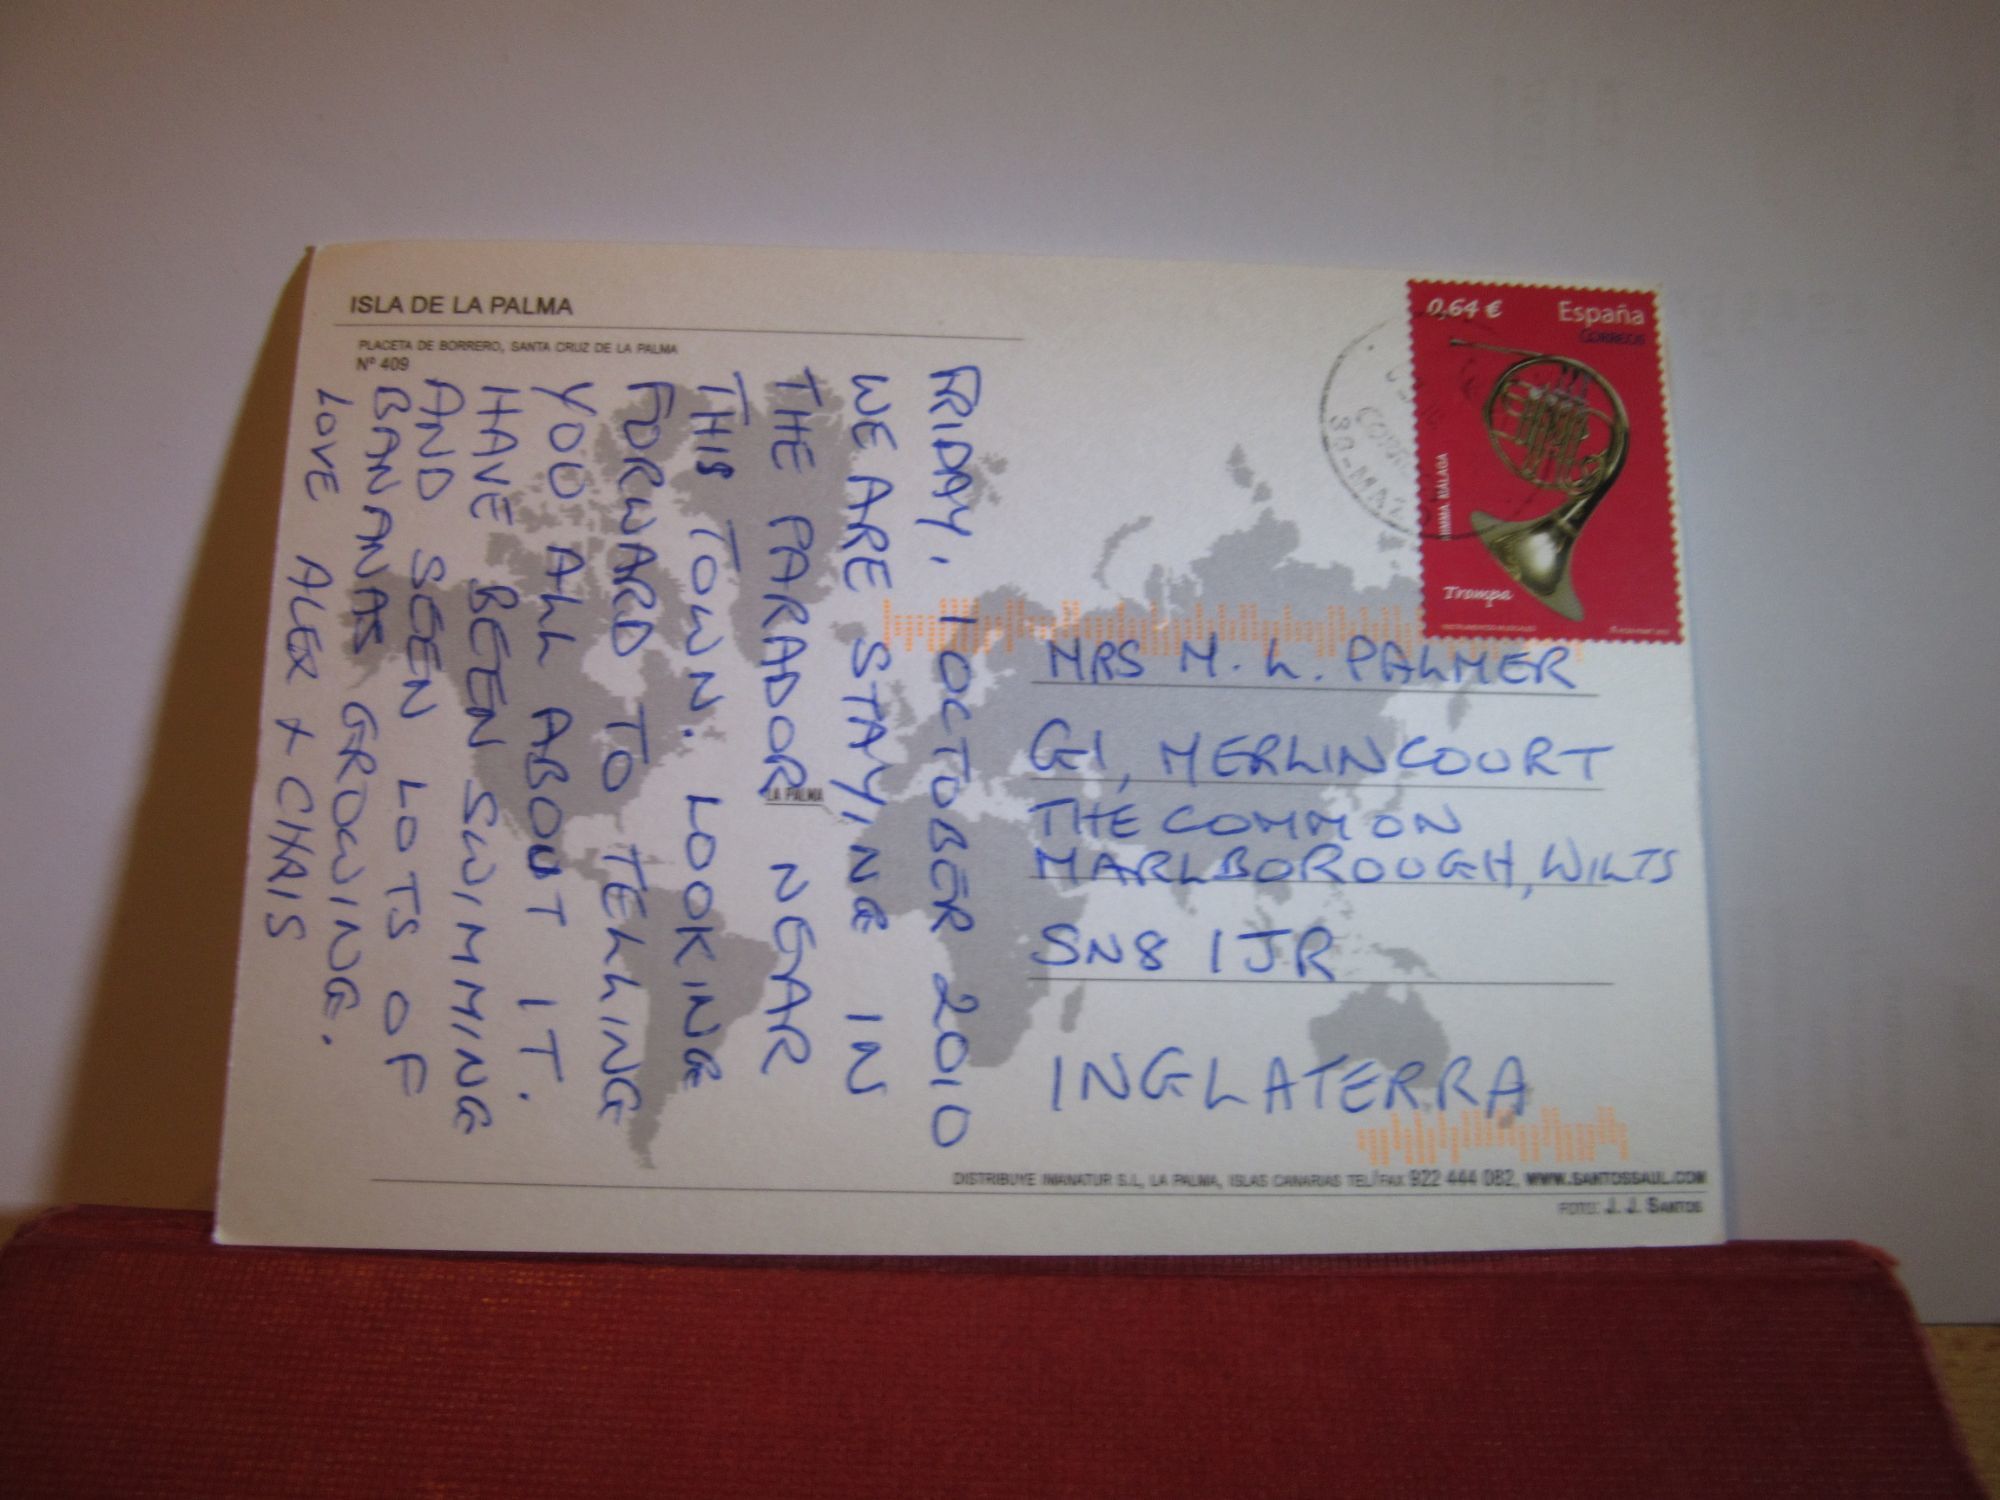 ISLA DE LA PALMA
PLACETA DE BORRERO, SANTA CRUZ DE LA PALMA
Nº 409
FRIDAY, 1 OCTOBER 2010
WE ARE STAYING IN
THE PARADOR NEAR
THIS TOWN. LOOKING
FORWARD TO TELLING
YOU ALL ABOUT IT.
HAVE BEEN SWIMMING
AND SEEN LOTS OF
BANANAS GROWING.
LOVE ALEX + CHRIS
LA PALMA
0,64 €
España
CORREOS
MIMMA. MÁLAGA
Trompa
INSTRUMENTOS MUSICALES
MRS M. L. PALMER
G1, MERLINCOURT
THE COMMON
MARLBOROUGH, WILTS
SN8 1JR
INGLATERRA
DISTRIBUYE IMANATUR S.L, LA PALMA, ISLAS CANARIAS TEL/FAX 922 444 082, WWW.SANTOSSAUL.COM
FOTO: J. J. SANTOS